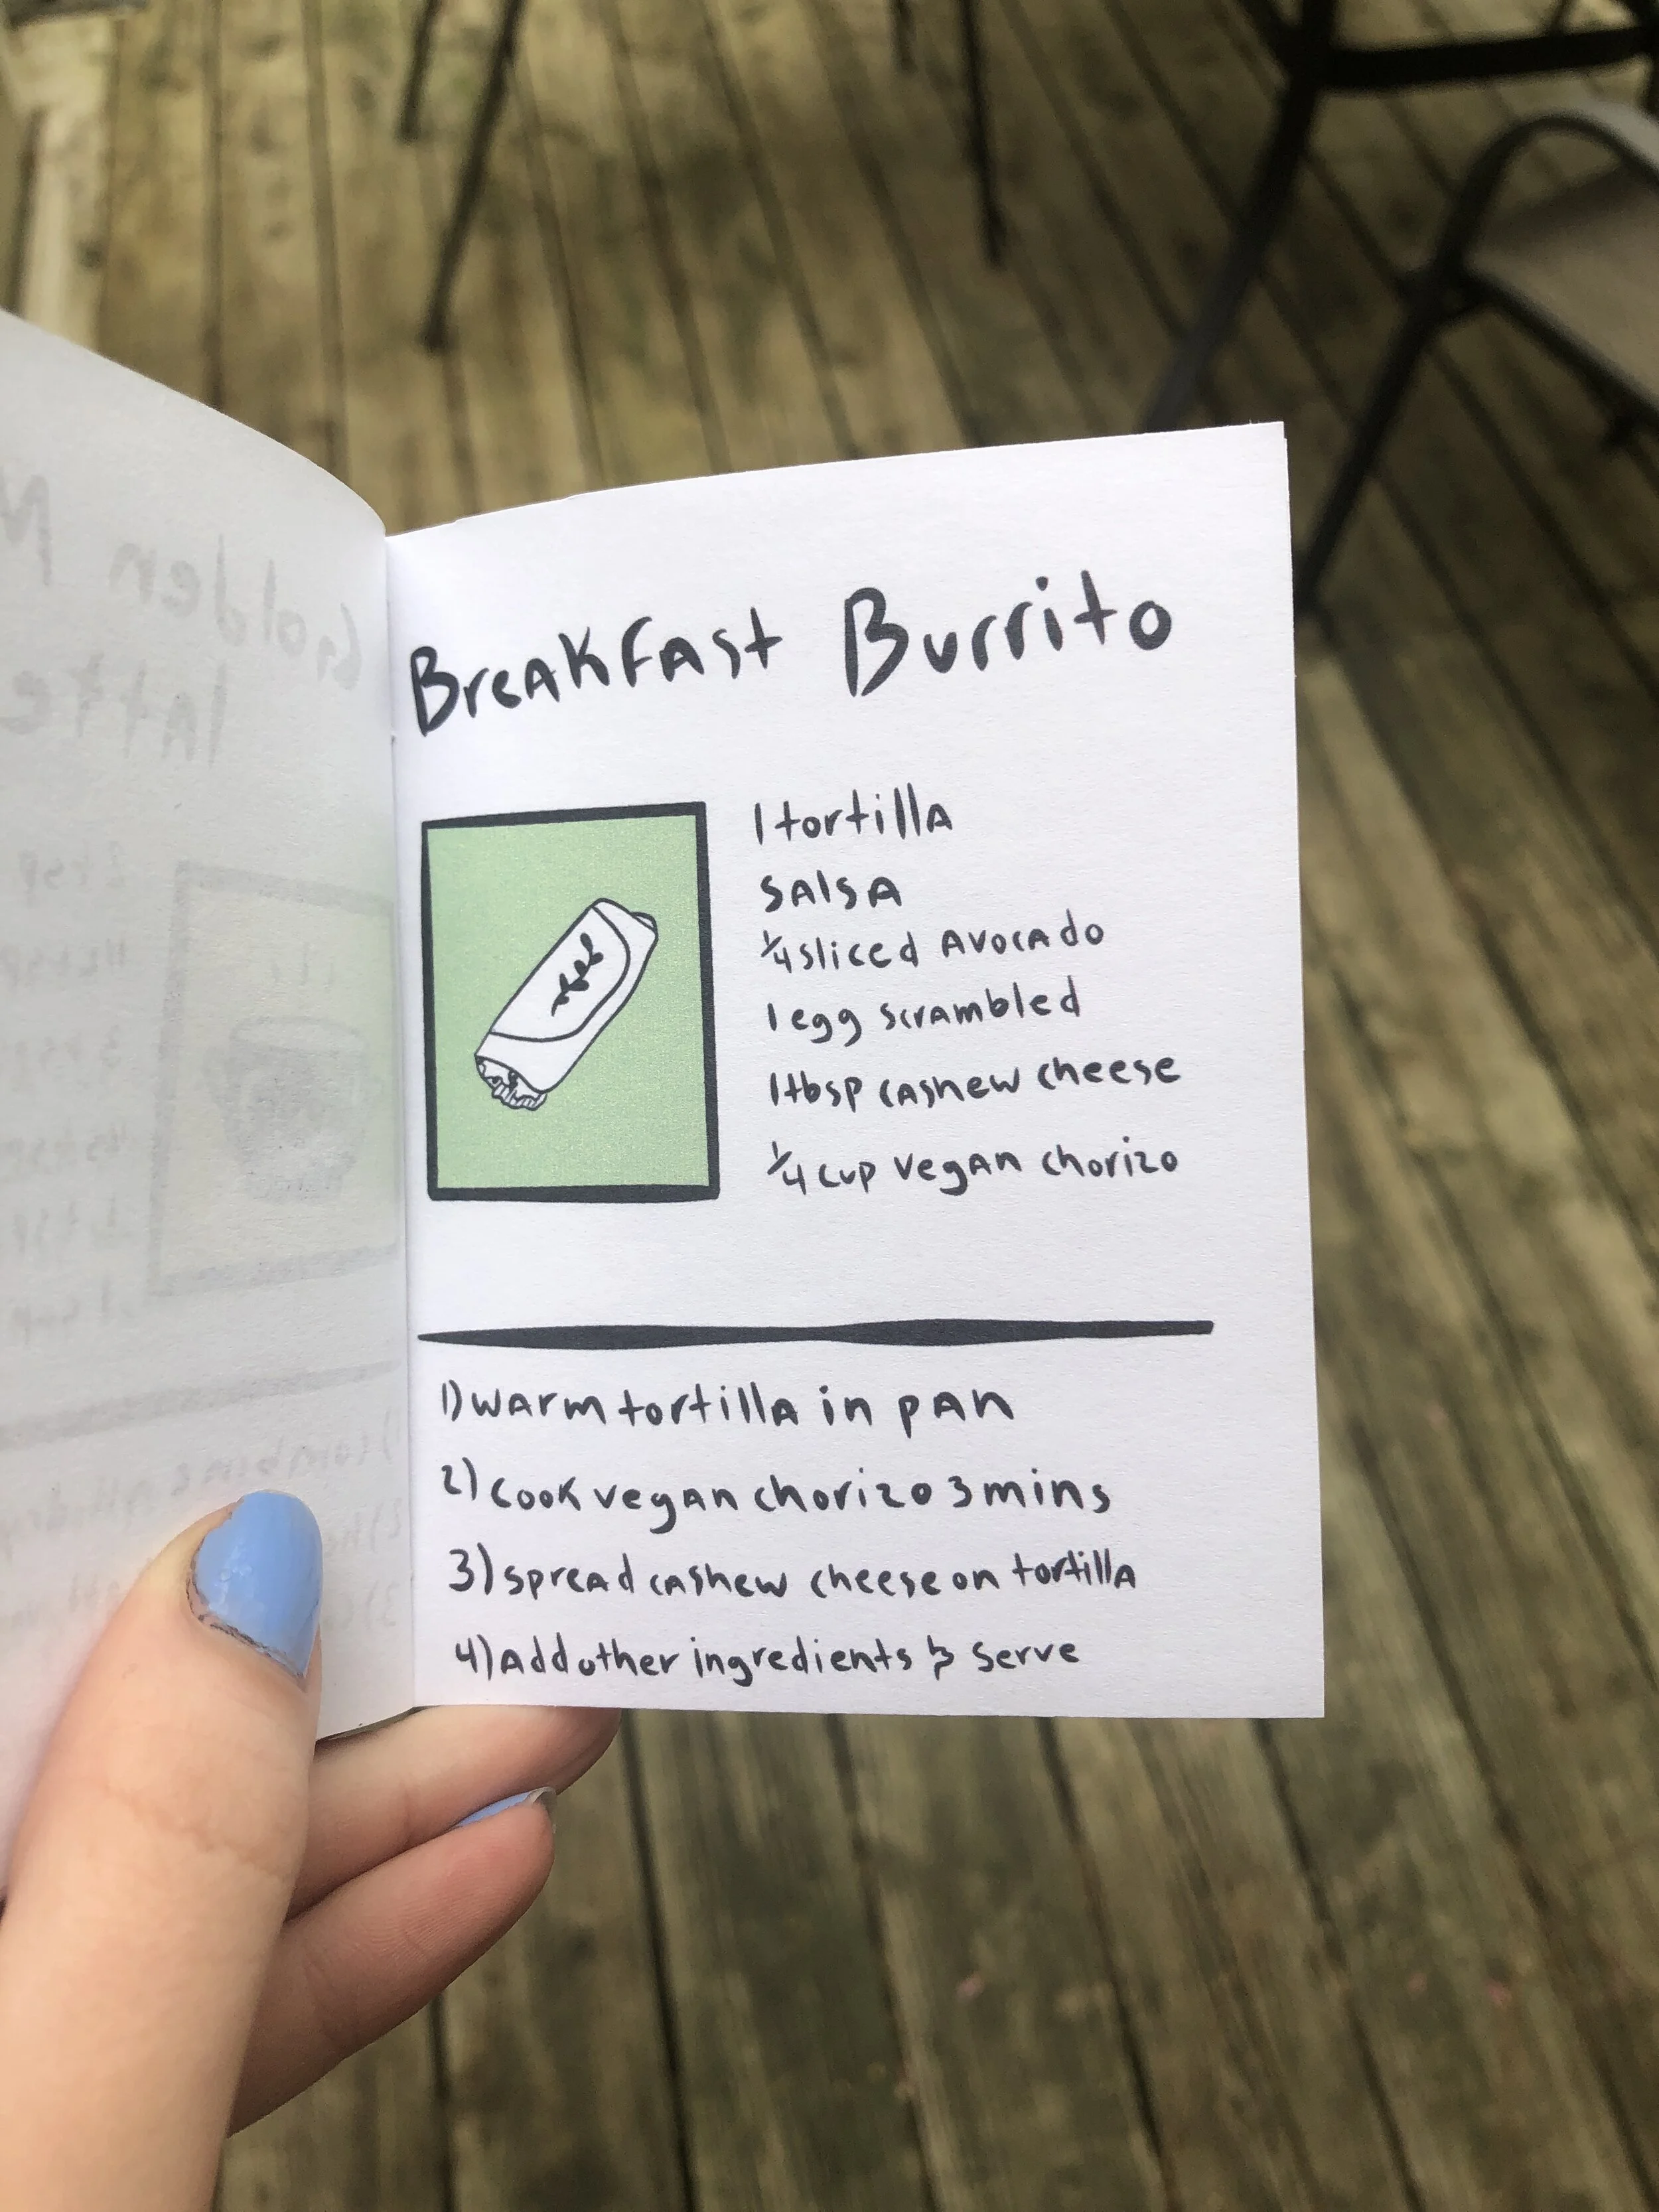 Breakfast Burrito
1 tortilla
salsa
1/4 sliced avocado
1 egg scrambled
1 tbsp cashew cheese
1/4 cup vegan chorizo
1) warm tortilla in pan
2) cook vegan chorizo 3 mins
3) spread cashew cheese on tortilla
4) Add other ingredients & serve
Golden
latte